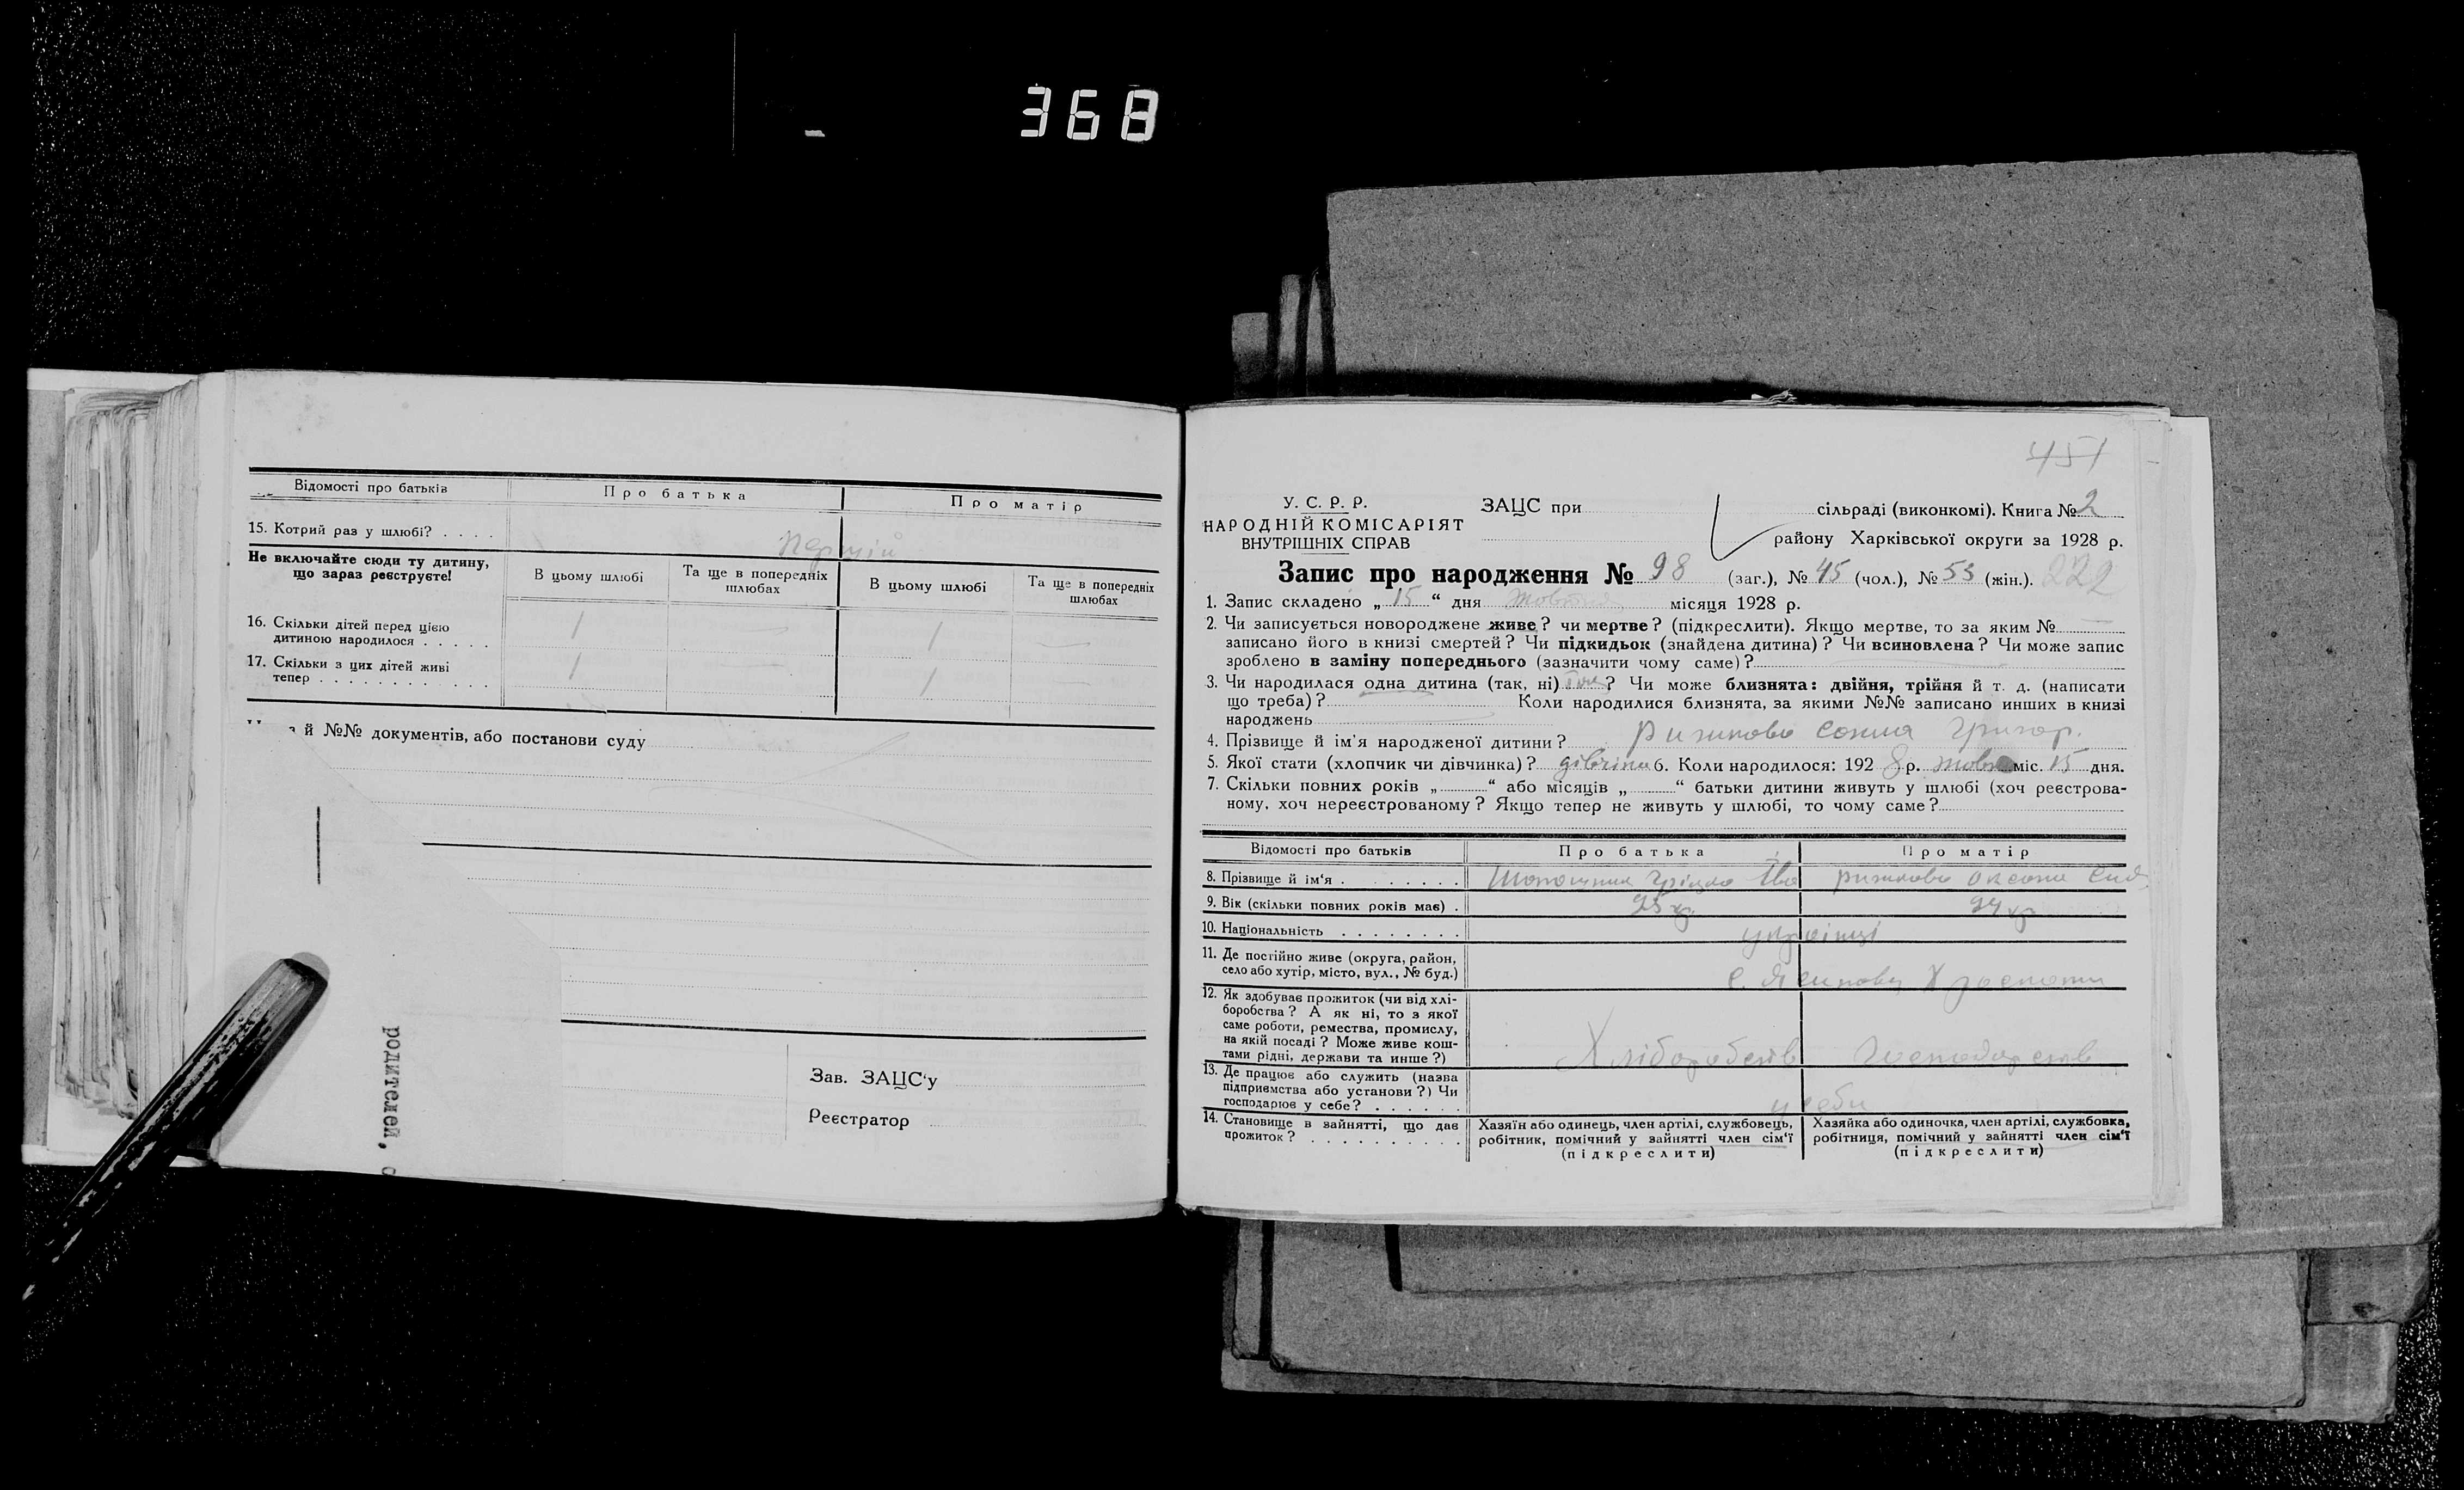 368
Відомості про батьків Про батька Про матір
15. Котрий раз у шлюбі? . . . . перший
Не включайте сюди ту дитину, що зараз реєструєте!
В цьому шлюбі Та ще в попередніх шлюбах В цьому шлюбі Та ще в попередніх шлюбах
16. Скільки дітей перед цією
дитиною народилося . . . . . 1 — 1 —
17. Скільки з цих дітей живі
тепер . . . . . . . . . . . . 1 — 1 —
й №№ документів, або постанови суду
родителей,
Зав. ЗАЦС'у
Реєстратор
451
У. С. Р. Р.
НАРОДНІЙ КОМІСАРІЯТ
ВНУТРІШНІХ СПРАВ
ЗАЦС при сільраді (виконкомі). Книга № 2
району Харківської округи за 1928 р.
Запис про народження № 98 (заг.), № 45 (чол.), № 53 (жін.). 222
1. Запис складено „ 15 “ дня жовтня місяця 1928 р.
2. Чи записується новороджене живе? чи мертве? (підкреслити). Якщо мертве, то за яким №
записано його в книзі смертей? Чи підкидьок (знайдена дитина)? Чи всиновлена? Чи може запис
зроблено в заміну попереднього (зазначити чому саме)?
3. Чи народилася одна дитина (так, ні) ? Чи може близнята: двійня, трійня й т. д. (написати
що треба)? Коли народилися близнята, за якими №№ записано инших в книзі
народжень
4. Прізвище й ім'я народженої дитини? Григор.
5. Якої стати (хлопчик чи дівчинка)? дівчина 6. Коли народилося: 192 8 р. міс. 15 дня.
7. Скільки повних років „ “ або місяців „ “ батьки дитини живуть у шлюбі (хоч реєстрова-
ному, хоч нереєстрованому? Якщо тепер не живуть у шлюбі, то чому саме?
Відомості про батьків Про батька Про матір
8. Прізвище й ім'я . . . . . . . . Грицко Іва оксана
9. Вік (скільки повних років має) . 24 р
10. Національність . . . . . . . . українці
11. Де постійно живе (округа, район,
село або хутір, місто, вул., № буд.) с.
12. Як здобуває прожиток (чи від хлі-
боробства? А як ні, то з якої
саме роботи, ремества, промислу,
на якій посаді? Може живе кош-
тами рідні, держави та инше?) Хліборобств Господарств
13. Де працює або служить (назва
підприємства або установи?) Чи
господарює у себе? . . . . . . у себи
14. Становище в зайнятті, що дає
прожиток? . . . . . . . . . .
Хазяїн або одинець, член артілі, службовець,
робітник, помічний у зайнятті член сім'ї
(підкреслити)
Хазяйка або одиночка, член артілі, службовка,
робітниця, помічний у зайнятті член сім'ї
(підкреслити)